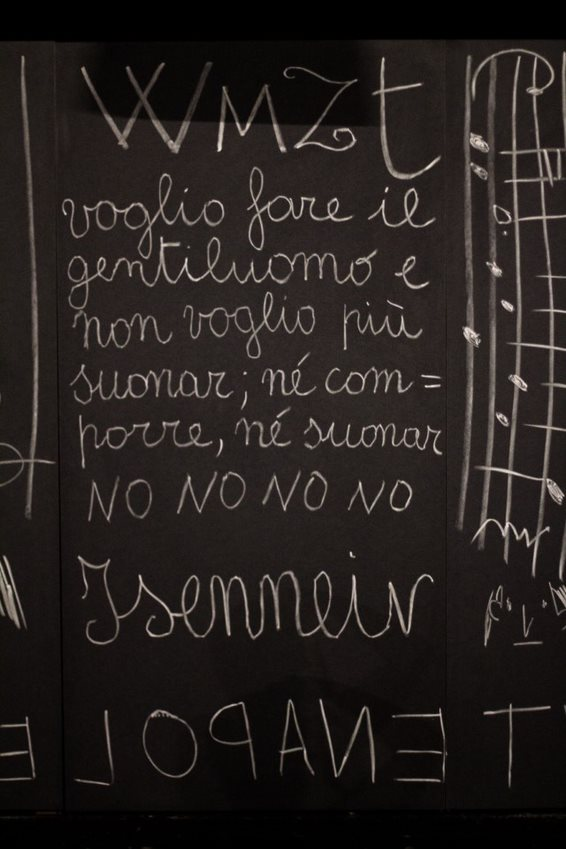 WMZt
voglio fare il
gentiluomo e
non voglio più
suonar; né com=
porre, né suonar
NO NO NO NO
Jsenneiv
⅃OꟼAИƎ